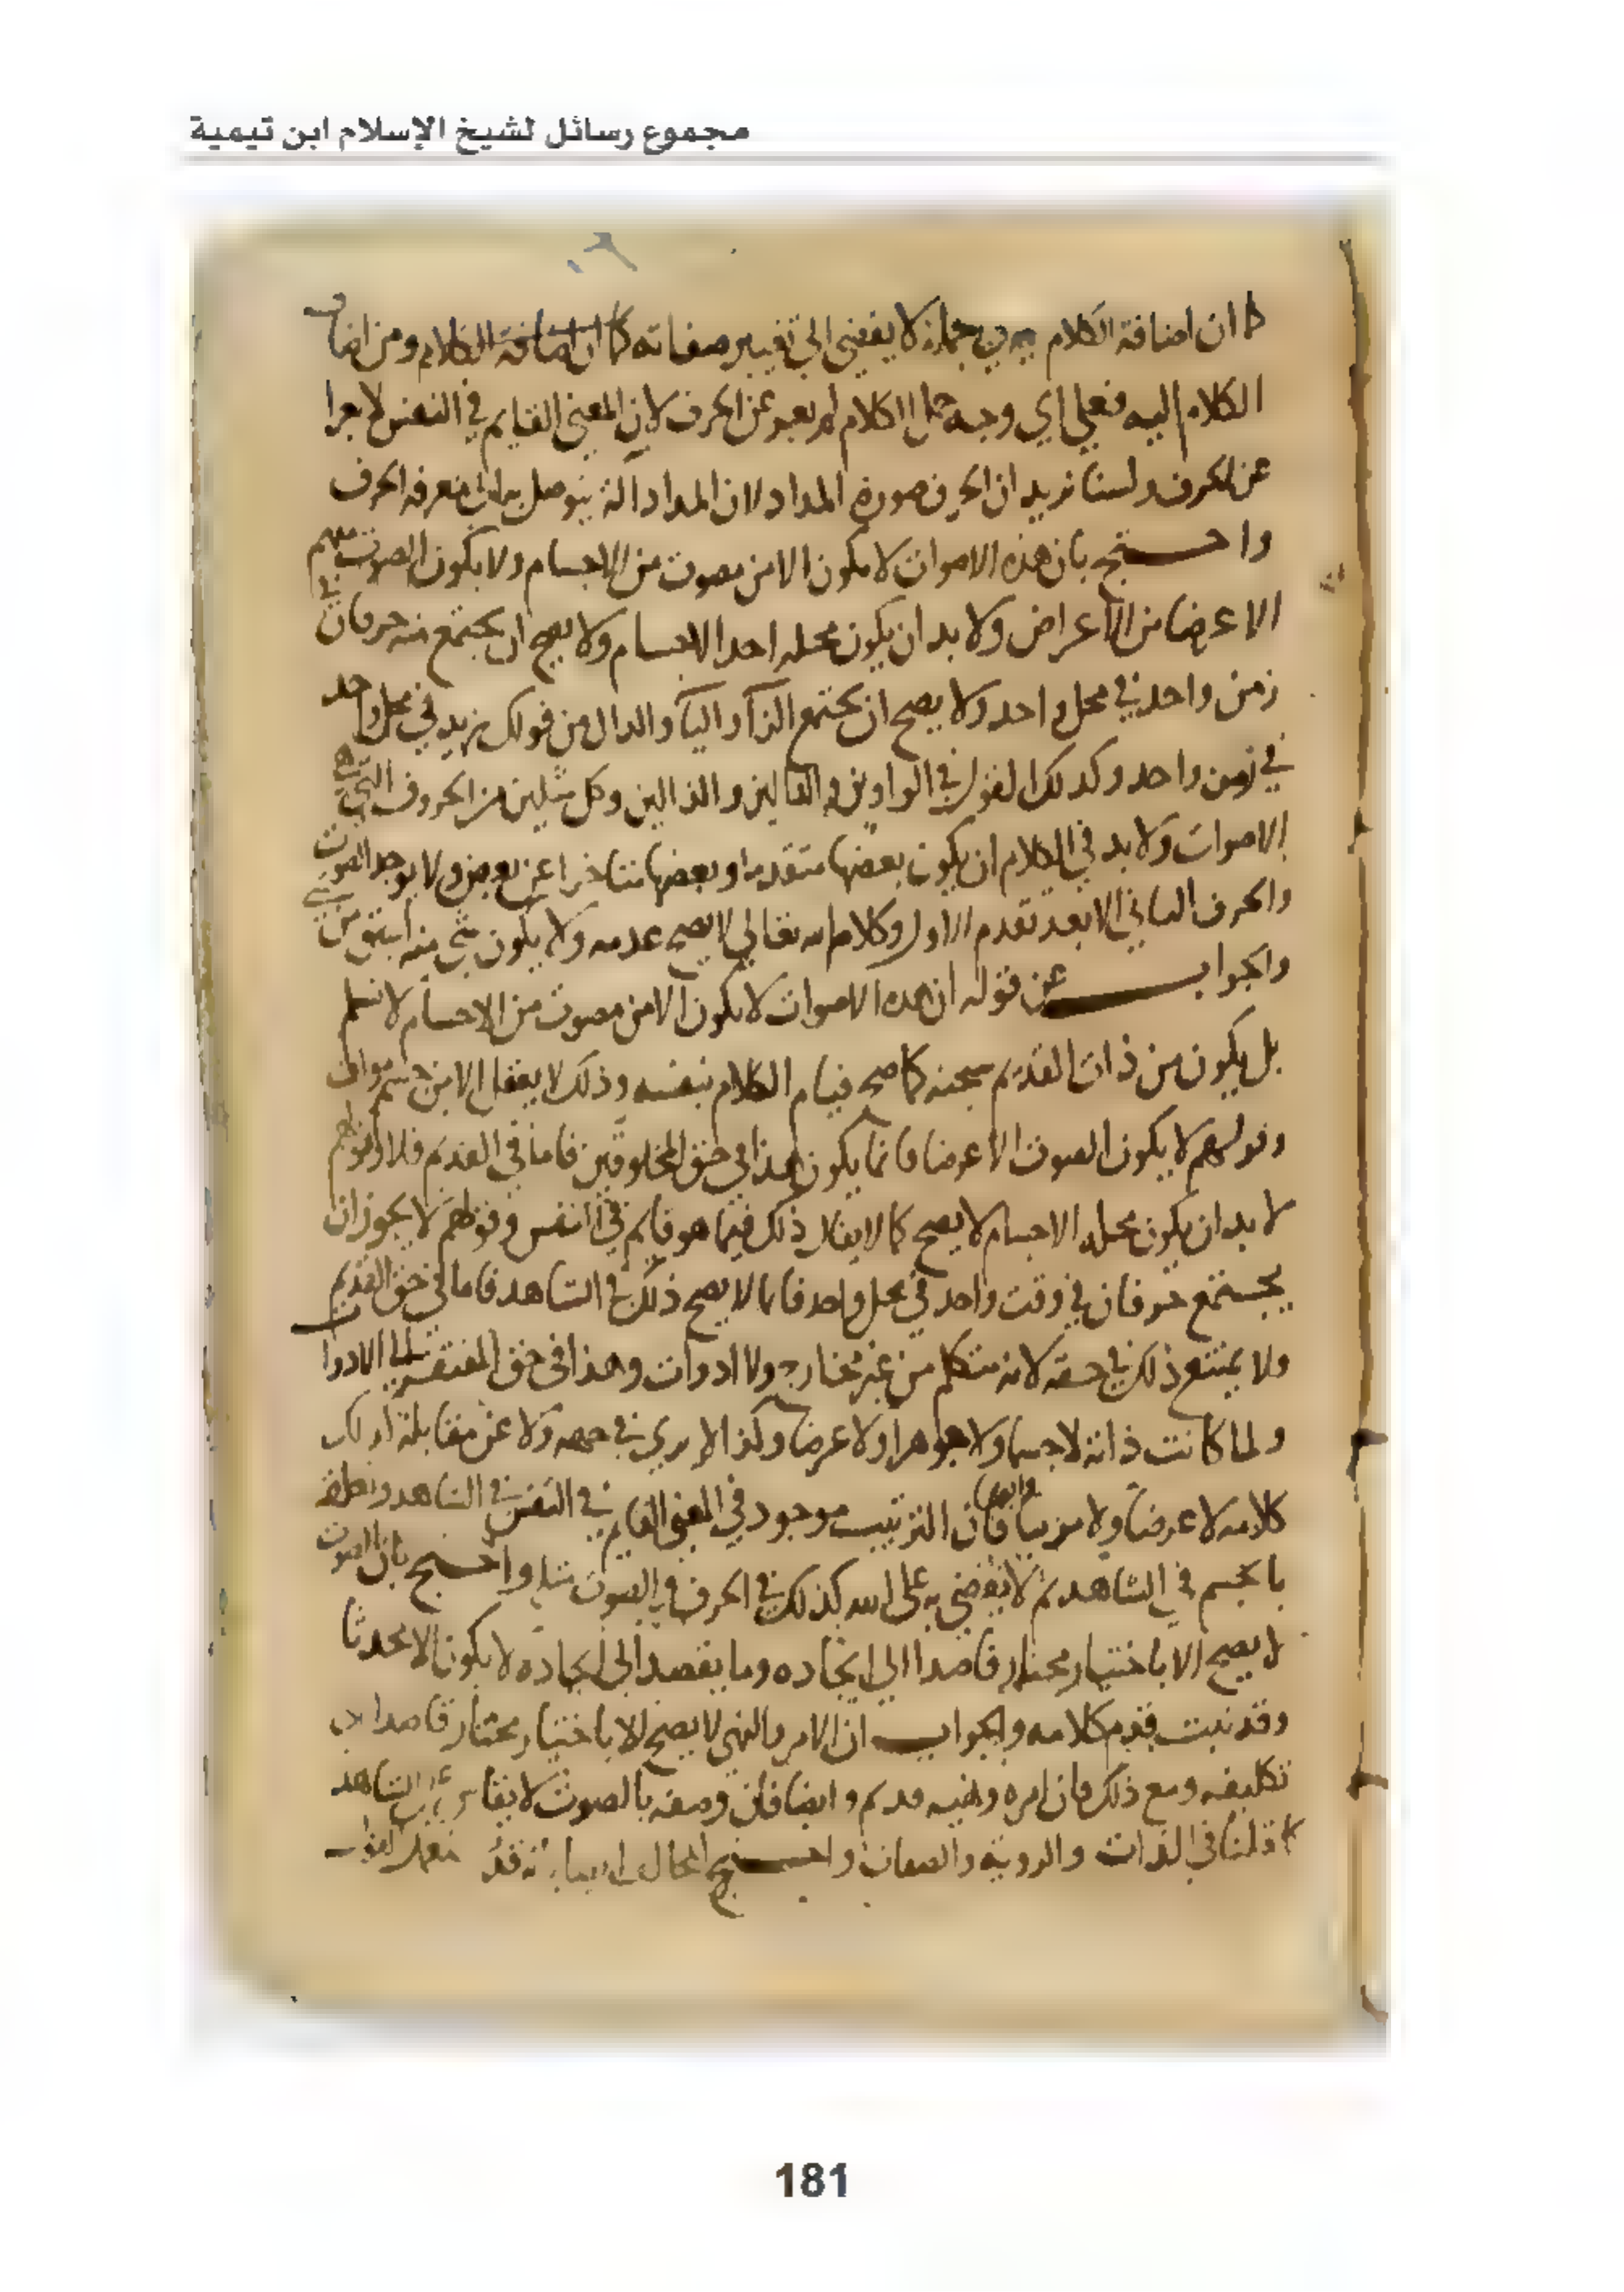 مجموع رسائل لشيخ الإسلام ابن تيمية
كما ان اضافة الكلام لا يفضي الى تغيير صفاته كما ان اضافة الكلام ومن اضاف
الكلام اليه فعلى اي وجه حمل الكلام لم يعر عن الحرف لان المعنى القايم في النفس لا يعرا
عن الحرف ولسنا نريد ان الحرف صورة المداد لان المداد آلة يتوصل بها الى معرفة الحرف
واحتج بان هذه الاصوات لا يكون الا من مصوت من الاجسام ولا يكون الصوت منهم
الا عرضا من الأعراض ولا بد ان يكون محله احد الاجسام ولا يصح ان يجتمع منه حرفان في
زمن واحد في محل واحد ولا يصح ان يجتمع الزآ واليآ والدال من قولك زيد في محل واحد
في زمن واحد وكذلك القول في الواوين والقالين والذالين وكل مثلين من الحروف التي هي
الاصوات ولا بد في الكلام ان يكون بعضها متقدما وبعضها متاخرا عن بعض ولا يوجد الصوت
والحرف الثاني الا بعد تقدم الاول وكلام الله تعالى لا يصح عدمه ولا يكون شي منه اسبق من شي
والجواب عن قوله ان هذه الاصوات لا يكون الا من مصوت من الاجسام لا نسلم
بل يكون من ذات القديم سبحنه كما صح قيام الكلام بنفسه وذلك لا يعقل الا من جسم موات
وقولهم لا يكون الصوت الا عرضا فانما يكون هذا في حق المخلوقين فاما في القديم فلا وقولهم
لا بد ان يكون محله الاجسام لا يصح كما لا يقال ذلك فيما هو قايم في النفس وقولهم لا يجوز ان
يجتمع حرفان في وقت واحد في محل واحد فانما لا يصح ذلك في الشاهد فاما في حق القديم
ولا يمتنع ذلك في حقه لانه متكلم من غير مخارج ولا ادوات وهذا في حق المفتقر الى الادوات
ولما كانت ذاته لا جسما ولا جوهرا ولا عرضا وكذا لا يري في جهه ولا عن مقابلة كذلك
كلامه لا عرضا ولا مرتبا وايضا فان الترتيب موجود في المعنى القايم في النفس في الشاهد
بالجسم في الشاهد ثم لا يقضى به على الله كذلك في الحرف والصوت مثله واحتج بان الصوت
لا يصح الا باختيار مختار قاصدا الى ايجاده وما يقصد الى ايجاده لا يكون الا محدثا
وقد ثبت قدم كلامه والجواب ان الامر والنهي لا يصح الا باختيار مختار قاصد الى
تكليفه ومع ذلك فان امره ونهيه قديم وايضا فان وصفه بالصوت لا يقاس على الشاهد
كما قلنا في الذات والروية والصفات واحتج المخالف ايضا بانه قد
181